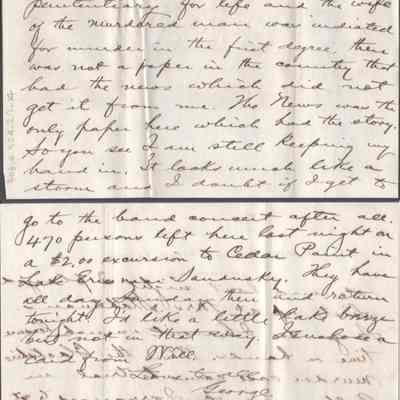 penitentiary for life and the wife
of the murdered man was indicted
for murder in the first degree, there
was not a paper in the country that
had the news which did not
get it from me. The News was the
only paper here which had the story.
So you see I am still keeping my
hand in. It looks much like a
storm and I doubt if I get to
go to the band concert after all.
470 persons left here last night on
a $2.00 excursion to Cedar Point in
Lake Erie near Sandusky. They have
all day Sunday there and return
tonight. I'd like a little lake breeze
but not in that way. I enclose a
card from Will.
George